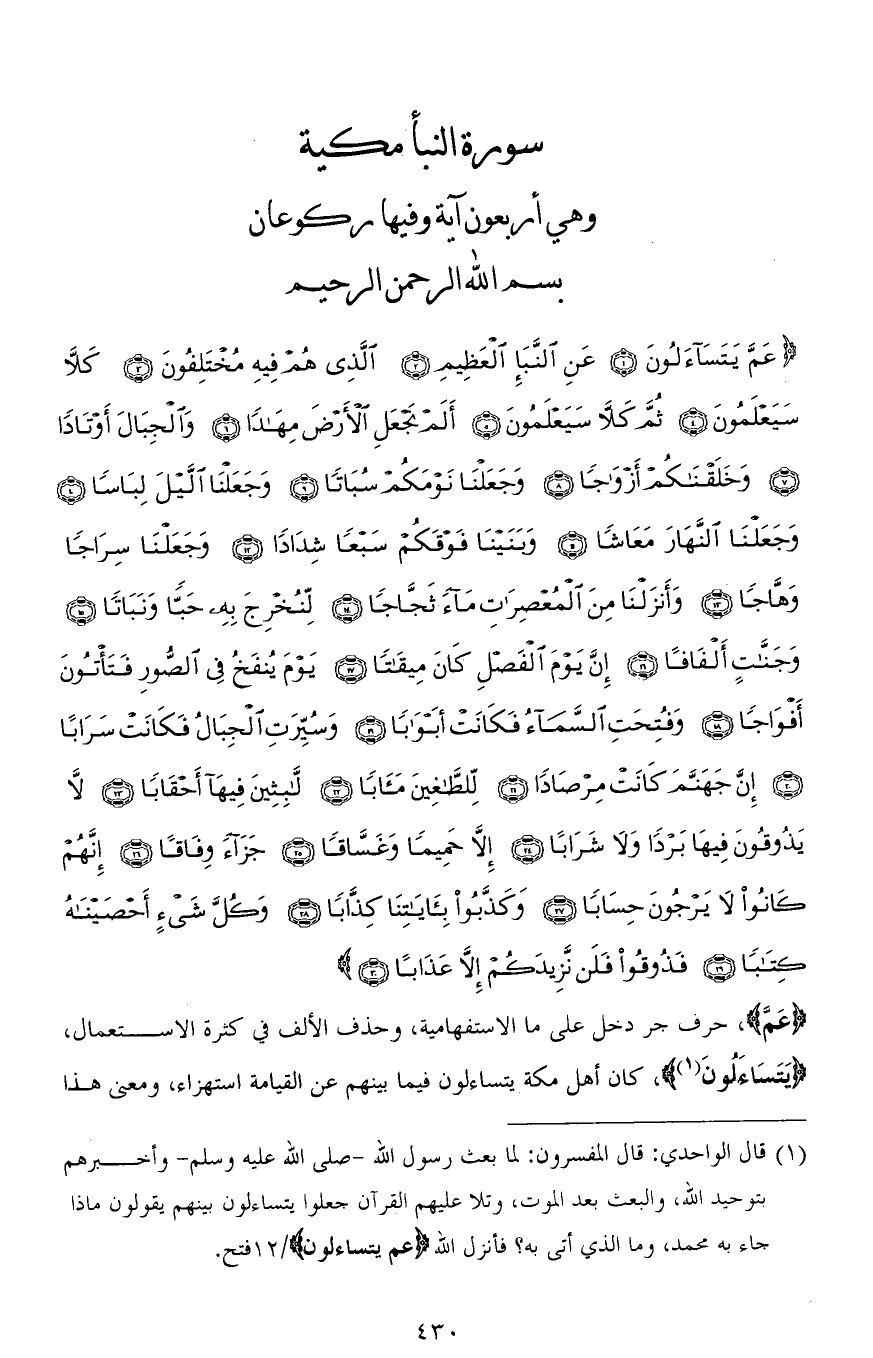 سورة النبأ مكية
وهي أربعون آية وفيها ركوعان
بسم الله الرحمن الرحيم
﴿ عَمَّ يَتَسَآءَلُونَ ۝١ عَنِ ٱلنَّبَإِ ٱلْعَظِيمِ ۝٢ ٱلَّذِى هُمْ فِيهِ مُخْتَلِفُونَ ۝٣ كَلَّا
سَيَعْلَمُونَ ۝٤ ثُمَّ كَلَّا سَيَعْلَمُونَ ۝٥ أَلَمْ نَجْعَلِ ٱلْأَرْضَ مِهَٰدًا ۝٦ وَٱلْجِبَالَ أَوْتَادًا
۝٧ وَخَلَقْنَٰكُمْ أَزْوَٰجًا ۝٨ وَجَعَلْنَا نَوْمَكُمْ سُبَاتًا ۝٩ وَجَعَلْنَا ٱلَّيْلَ لِبَاسًا ۝١٠
وَجَعَلْنَا ٱلنَّهَارَ مَعَاشًا ۝١١ وَبَنَيْنَا فَوْقَكُمْ سَبْعًا شِدَادًا ۝١٢ وَجَعَلْنَا سِرَاجًا
وَهَّاجًا ۝١٣ وَأَنزَلْنَا مِنَ ٱلْمُعْصِرَٰتِ مَآءً ثَجَّاجًا ۝١٤ لِّنُخْرِجَ بِهِۦ حَبًّا وَنَبَاتًا ۝١٥
وَجَنَّٰتٍ أَلْفَافًا ۝١٦ إِنَّ يَوْمَ ٱلْفَصْلِ كَانَ مِيقَٰتًا ۝١٧ يَوْمَ يُنفَخُ فِى ٱلصُّورِ فَتَأْتُونَ
أَفْوَاجًا ۝١٨ وَفُتِحَتِ ٱلسَّمَآءُ فَكَانَتْ أَبْوَٰبًا ۝١٩ وَسُيِّرَتِ ٱلْجِبَالُ فَكَانَتْ سَرَابًا
۝٢٠ إِنَّ جَهَنَّمَ كَانَتْ مِرْصَادًا ۝٢١ لِّلطَّٰغِينَ مَـَٔابًا ۝٢٢ لَّٰبِثِينَ فِيهَآ أَحْقَابًا ۝٢٣ لَّا
يَذُوقُونَ فِيهَا بَرْدًا وَلَا شَرَابًا ۝٢٤ إِلَّا حَمِيمًا وَغَسَّاقًا ۝٢٥ جَزَآءً وِفَاقًا ۝٢٦ إِنَّهُمْ
كَانُوا۟ لَا يَرْجُونَ حِسَابًا ۝٢٧ وَكَذَّبُوا۟ بِـَٔايَٰتِنَا كِذَّابًا ۝٢٨ وَكُلَّ شَىْءٍ أَحْصَيْنَٰهُ
كِتَٰبًا ۝٢٩ فَذُوقُوا۟ فَلَن نَّزِيدَكُمْ إِلَّا عَذَابًا ۝٣٠ ﴾
﴿عَمَّ﴾، حرف جر دخل على ما الاستفهامية، وحذف الألف في كثرة الاستعمال،
﴿يَتَسَاءَلُونَ(١)﴾، كان أهل مكة يتساءلون فيما بينهم عن القيامة استهزاء، ومعنى هذا
(١) قال الواحدي: قال المفسرون: لما بعث رسول الله -صلى الله عليه وسلم- وأخبرهم
بتوحيد الله، والبعث بعد الموت، وتلا عليهم القرآن جعلوا يتساءلون بينهم يقولون ماذا
جاء به محمد، وما الذي أتى به؟ فأنزل الله ﴿عم يتساءلون﴾/١٢فتح.
٤٣٠